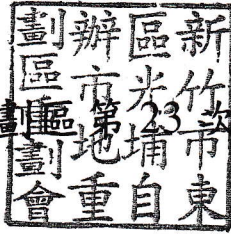 新竹市東
區光埔自
辦市地重
劃區重劃會
劃區 第 23 次